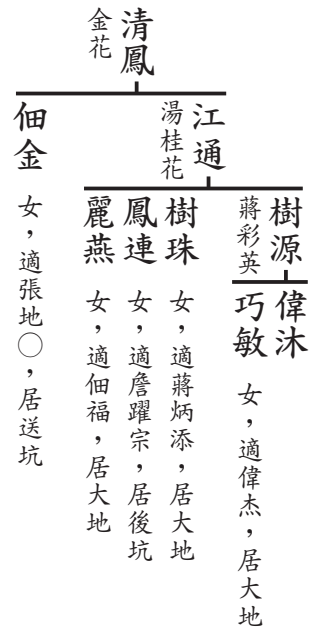 清鳳
金花
江通
湯桂花
佃金
女，適張地○，居送坑
樹源
蔣彩英
樹珠
女，適蔣炳添，居大地
鳳連
女，適詹躍宗，居後坑
麗燕
女，適佃福，居大地
偉沐
巧敏
女，適偉杰，居大地